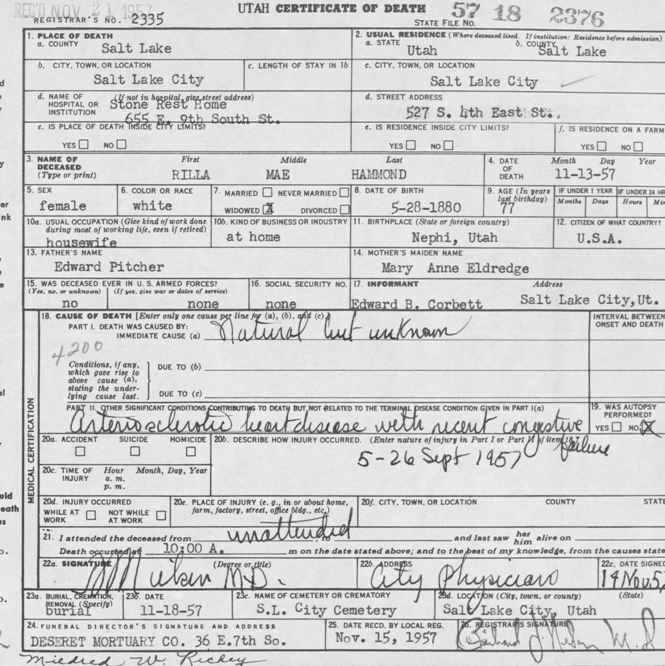 REC'D NOV 21 1957
UTAH CERTIFICATE OF DEATH 57 18 2376
REGISTRAR'S NO. 2335 STATE FILE NO.
1. PLACE OF DEATH
a. COUNTY
Salt Lake
2. USUAL RESIDENCE (Where deceased lived. If institution: Residence before admission)
a. STATE b. COUNTY
Utah Salt Lake
b. CITY, TOWN, OR LOCATION c. LENGTH OF STAY IN 1b
Salt Lake City
c. CITY, TOWN, OR LOCATION
Salt Lake City
d. NAME OF (If not in hospital, give street address)
HOSPITAL OR INSTITUTION
Stone Rest Home
655 E. 9th South St.
d. STREET ADDRESS
527 S. 4th East St.
e. IS PLACE OF DEATH INSIDE CITY LIMITS?
YES NO
e. IS RESIDENCE INSIDE CITY LIMITS? f. IS RESIDENCE ON A FARM
YES NO YES NO
3. NAME OF DECEASED (Type or print)
First Middle Last
RILLA MAE HAMMOND
4. DATE OF DEATH Month Day Year
11-13-57
5. SEX
female
6. COLOR OR RACE
white
7. MARRIED NEVER MARRIED
WIDOWED X DIVORCED
8. DATE OF BIRTH
5-28-1880
9. AGE (In years last birthday)
77
IF UNDER 1 YEAR IF UNDER 24 HR
Months Days Hours Min
10a. USUAL OCCUPATION (Give kind of work done during most of working life, even if retired)
housewife
10b. KIND OF BUSINESS OR INDUSTRY
at home
11. BIRTHPLACE (State or foreign country)
Nephi, Utah
12. CITIZEN OF WHAT COUNTRY?
U.S.A.
13. FATHER'S NAME
Edward Pitcher
14. MOTHER'S MAIDEN NAME
Mary Anne Eldredge
15. WAS DECEASED EVER IN U. S. ARMED FORCES?
(Yes, no, or unknown) (If yes, give war or dates of service)
no none
16. SOCIAL SECURITY NO.
none
17. INFORMANT Address
Edward B. Corbett Salt Lake City, Ut.
18. CAUSE OF DEATH [Enter only one cause per line for (a), (b), and (c).]
PART I. DEATH WAS CAUSED BY:
IMMEDIATE CAUSE (a) Natural but unknown
INTERVAL BETWEEN ONSET AND DEATH
4200
Conditions, if any, which gave rise to above cause (a), stating the underlying cause last.
DUE TO (b)
DUE TO (c)
PART II. OTHER SIGNIFICANT CONDITIONS CONTRIBUTING TO DEATH BUT NOT RELATED TO THE TERMINAL DISEASE CONDITION GIVEN IN PART I(a)
Arteriosclerotic heart disease with recent congestive failure
19. WAS AUTOPSY PERFORMED?
YES NO X
20a. ACCIDENT SUICIDE HOMICIDE
20b. DESCRIBE HOW INJURY OCCURRED. (Enter nature of injury in Part I or Part II of item 18.)
5-26 Sept 1957
20c. TIME OF INJURY Hour Month, Day, Year
a. m.
p. m.
20d. INJURY OCCURRED
WHILE AT WORK NOT WHILE AT WORK
20e. PLACE OF INJURY (e. g., in or about home, farm, factory, street, office bldg., etc.)
20f. CITY, TOWN, OR LOCATION COUNTY STATE
21. I attended the deceased from unattended and last saw her him alive on
Death occurred at 10:00 A. m on the date stated above; and to the best of my knowledge, from the causes state
22a. SIGNATURE (Degree or title)
M.D.
22b. ADDRESS
City Physician
22c. DATE SIGNED
14 Nov, 5
23a. BURIAL, CREMATION, REMOVAL (Specify)
burial
23b. DATE
11-18-57
23c. NAME OF CEMETERY OR CREMATORY
S.L. City Cemetery
23d. LOCATION (City, town, or county) (State)
Salt Lake City, Utah
24. FUNERAL DIRECTOR'S SIGNATURE AND ADDRESS
DESERET MORTUARY CO. 36 E. 7th So.
25. DATE RECD. BY LOCAL REG.
Nov. 15, 1957
26. REGISTRAR'S SIGNATURE
Mildred W. Richey
MEDICAL CERTIFICATION